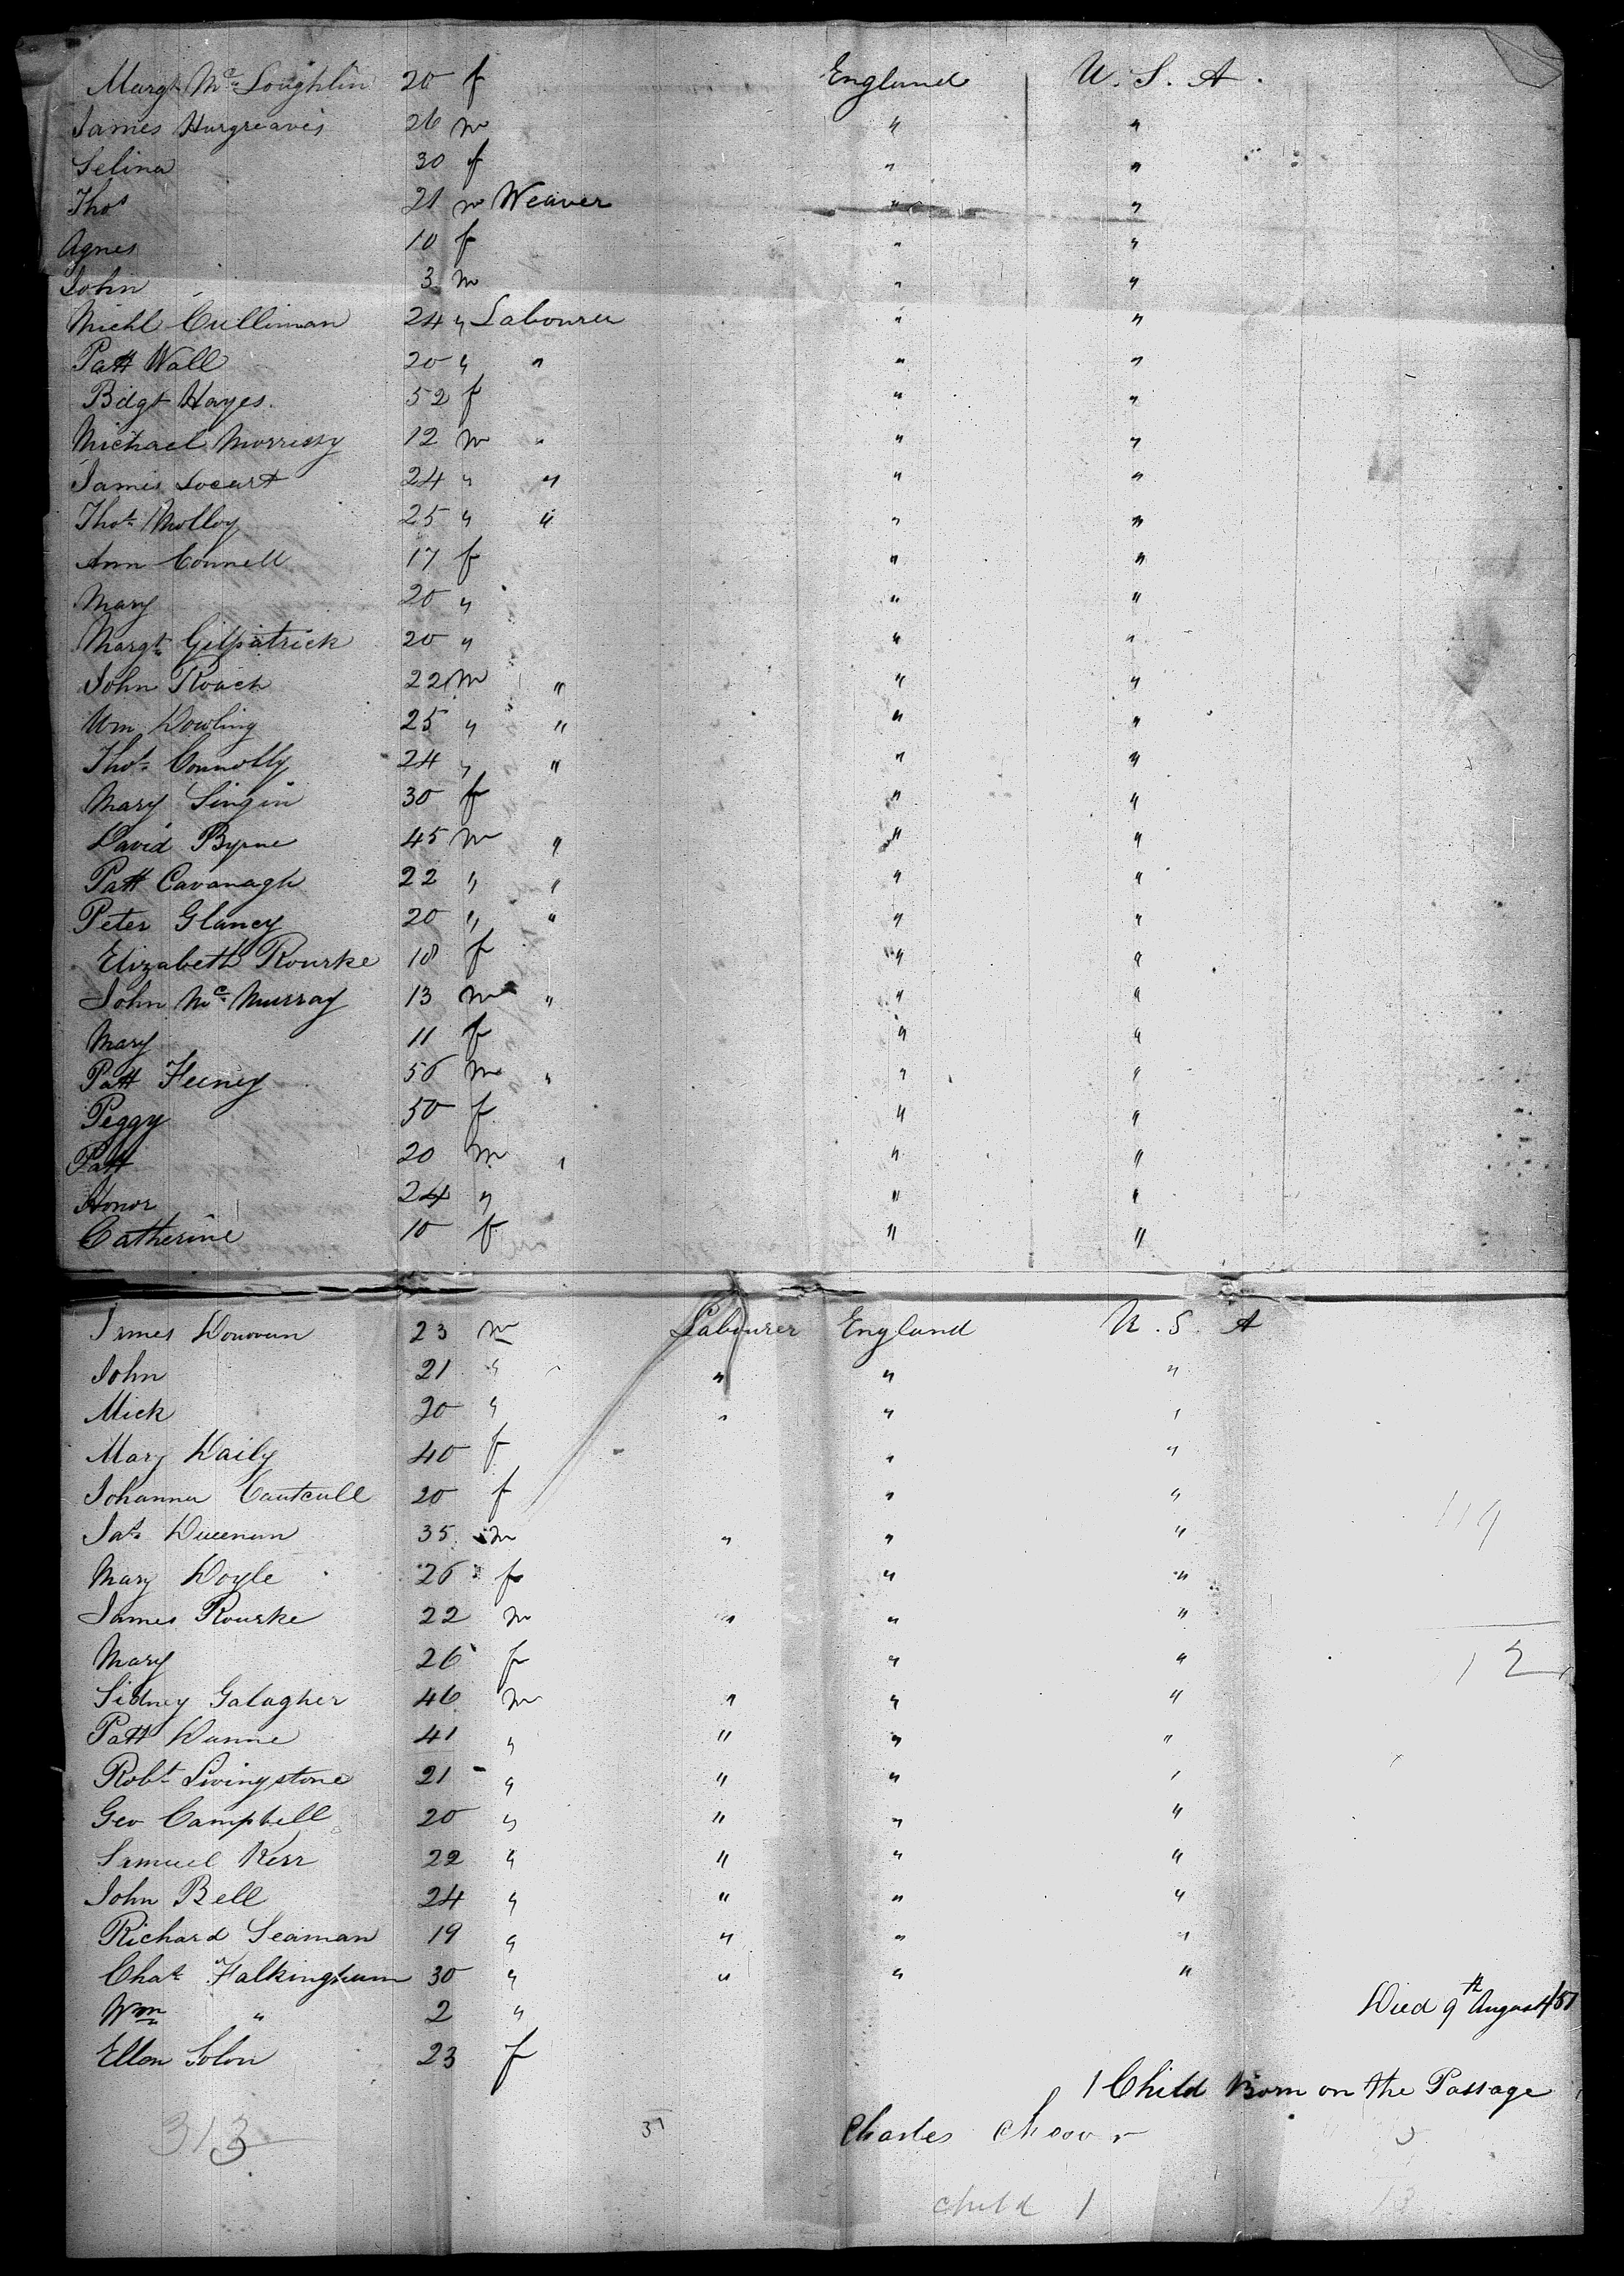 Margt McLoughlin 20 f England U. S. A.
James Hargreaves 26 m " "
Selina 30 f " "
Thos 21 m Weaver " "
Agnes 10 f " "
John 3 m " "
Michl Cullinan 24 " Labourer " "
Patt Wall 20 " " " "
Bdgt Hayes. 52 f " "
Michael Morrissy 12 m " " "
James Locart 24 " " " "
Thos Molloy 25 " " " "
Ann Connell 17 f " "
Mary 20 " " "
Margt Gilpatrick 20 " " "
John Roach 22 m " " "
Wm Dowling 25 " " " "
Thos Connolly 24 " " " "
Mary Singin 30 f " "
David Byrne 45 m " " "
Patt Cavanagh 22 " " " "
Peter Glancy 20 " " " "
Elizabeth Rourke 18 f " "
John McMurray 13 m " " "
Mary 11 f " "
Patt Feeney 56 m " " "
Peggy 50 f " "
Patt 20 m " " "
Honor 24 " " "
Catherine 10 f " "
James Donovan 23 m Labourer England U. S. A
John 21 " " " "
Mick 20 " " " "
Mary Daily 40 f " "
Johanna 20 f " "
Jas 35 m " " "
Mary Doyle 26 f " "
James Rourke 22 m " " "
Mary 26 f " "
Sidney Galagher 46 m " " "
Patt Dunne 41 " " " "
Robt Livingstone 21 " " " "
Geo Campbell 20 " " " "
Samuel Kerr 22 " " " "
John Bell 24 " " " "
Richard Seaman 19 " " " "
Chas Falkingham 30 " " " "
Wm " 2 " Died 9th August/51
Ellen Solon 23 f
1 Child Born on the Passage
313 Charles
child 1